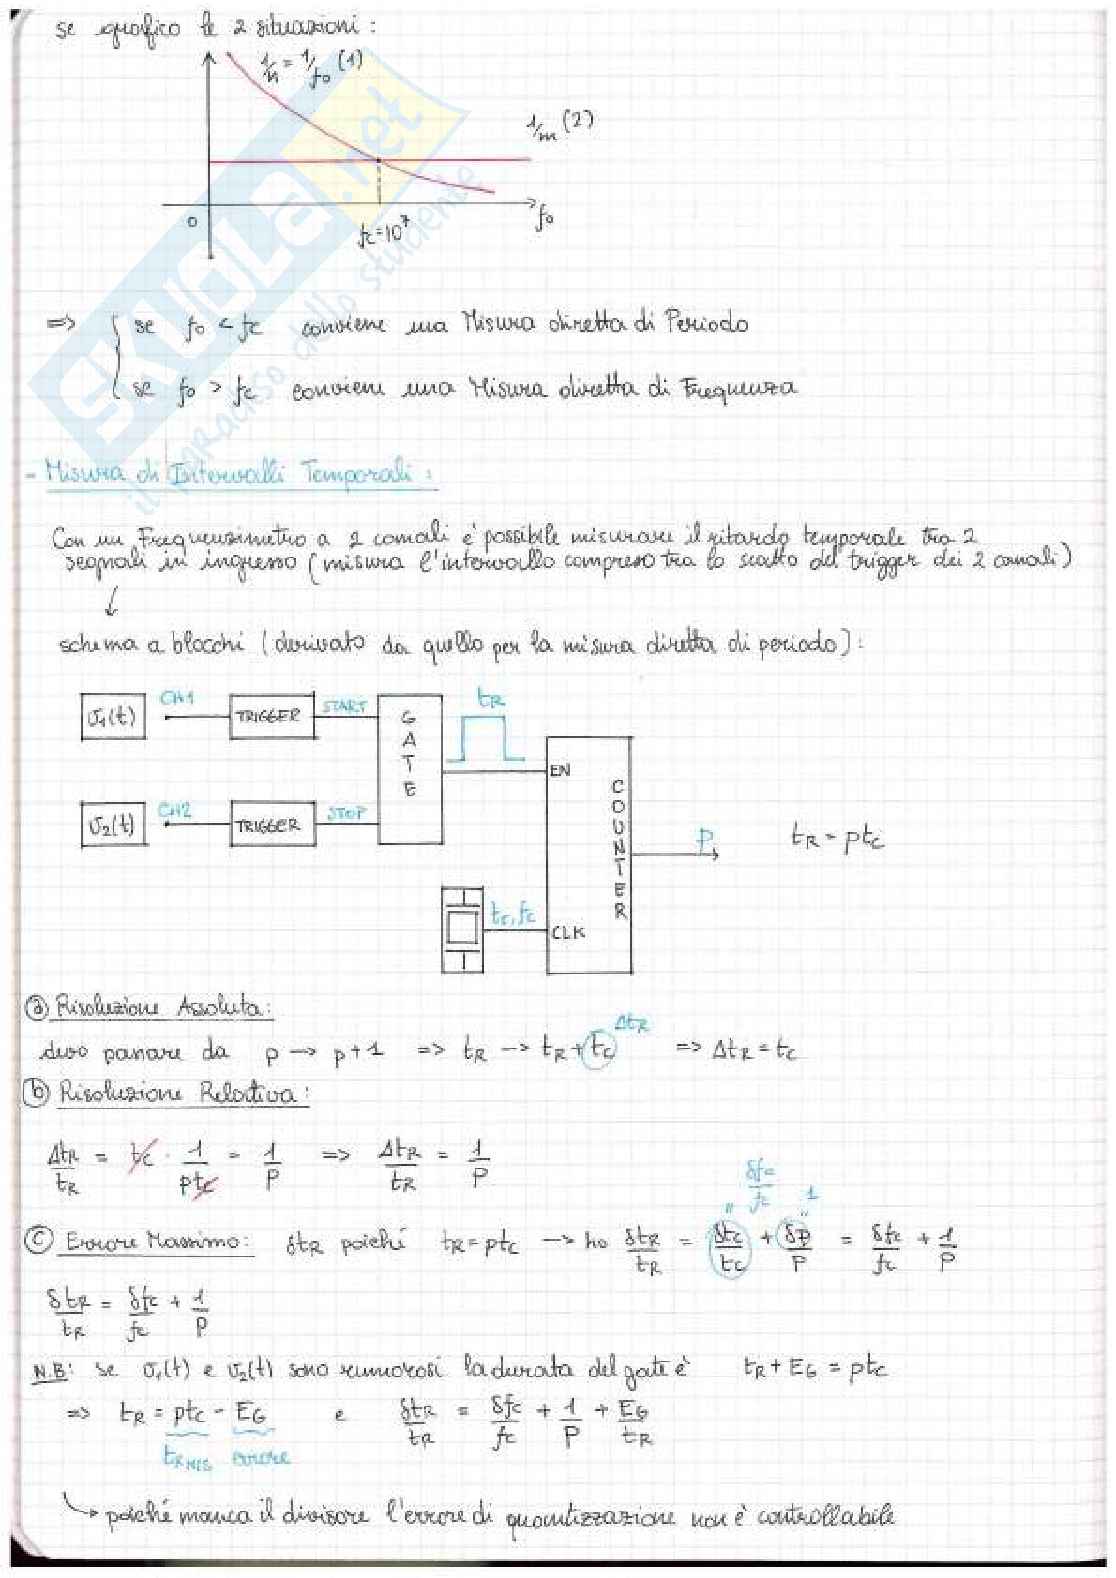 se grafico le 2 situazioni:
1/n = 1/f0 (1)
1/m (2)
0
fc=10^7
f0
=> { se f0 < fc conviene una Misura diretta di Periodo
se f0 > fc conviene una Misura diretta di Frequenza
- Misura di Intervalli Temporali:
Con un Frequenzimetro a 2 canali è possibile misurare il ritardo temporale tra 2
segnali in ingresso (misura l'intervallo compreso tra lo scatto del trigger dei 2 canali)
↓
schema a blocchi (derivato da quello per la misura diretta di periodo):
v1(t) CH1 TRIGGER START GATE tR
EN
v2(t) CH2 TRIGGER STOP
COUNTER
P
tR = ptc
tc, fc CLK
ⓐ Risoluzione Assoluta:
devo passare da p → p+1 => tR → tR + tc ΔtR => ΔtR = tc
ⓑ Risoluzione Relativa:
ΔtR/tR = tc · 1/ptc = 1/P => ΔtR/tR = 1/P
δfc/fc
" 1
"
ⓒ Errore Massimo: δtR poiché tR = ptc → ho δtR/tR = δtc/tc + δp/P = δfc/fc + 1/P
δtR/tR = δfc/fc + 1/P
N.B: se v1(t) e v2(t) sono rumorosi la durata del gate è tR + EG = ptc
=> tR = ptc - EG e δtR/tR = δfc/fc + 1/P + EG/tR
tRMIS errore
↳ poiché manca il divisore l'errore di quantizzazione non è controllabile
SKUOLa.net
il paradiso dello studente